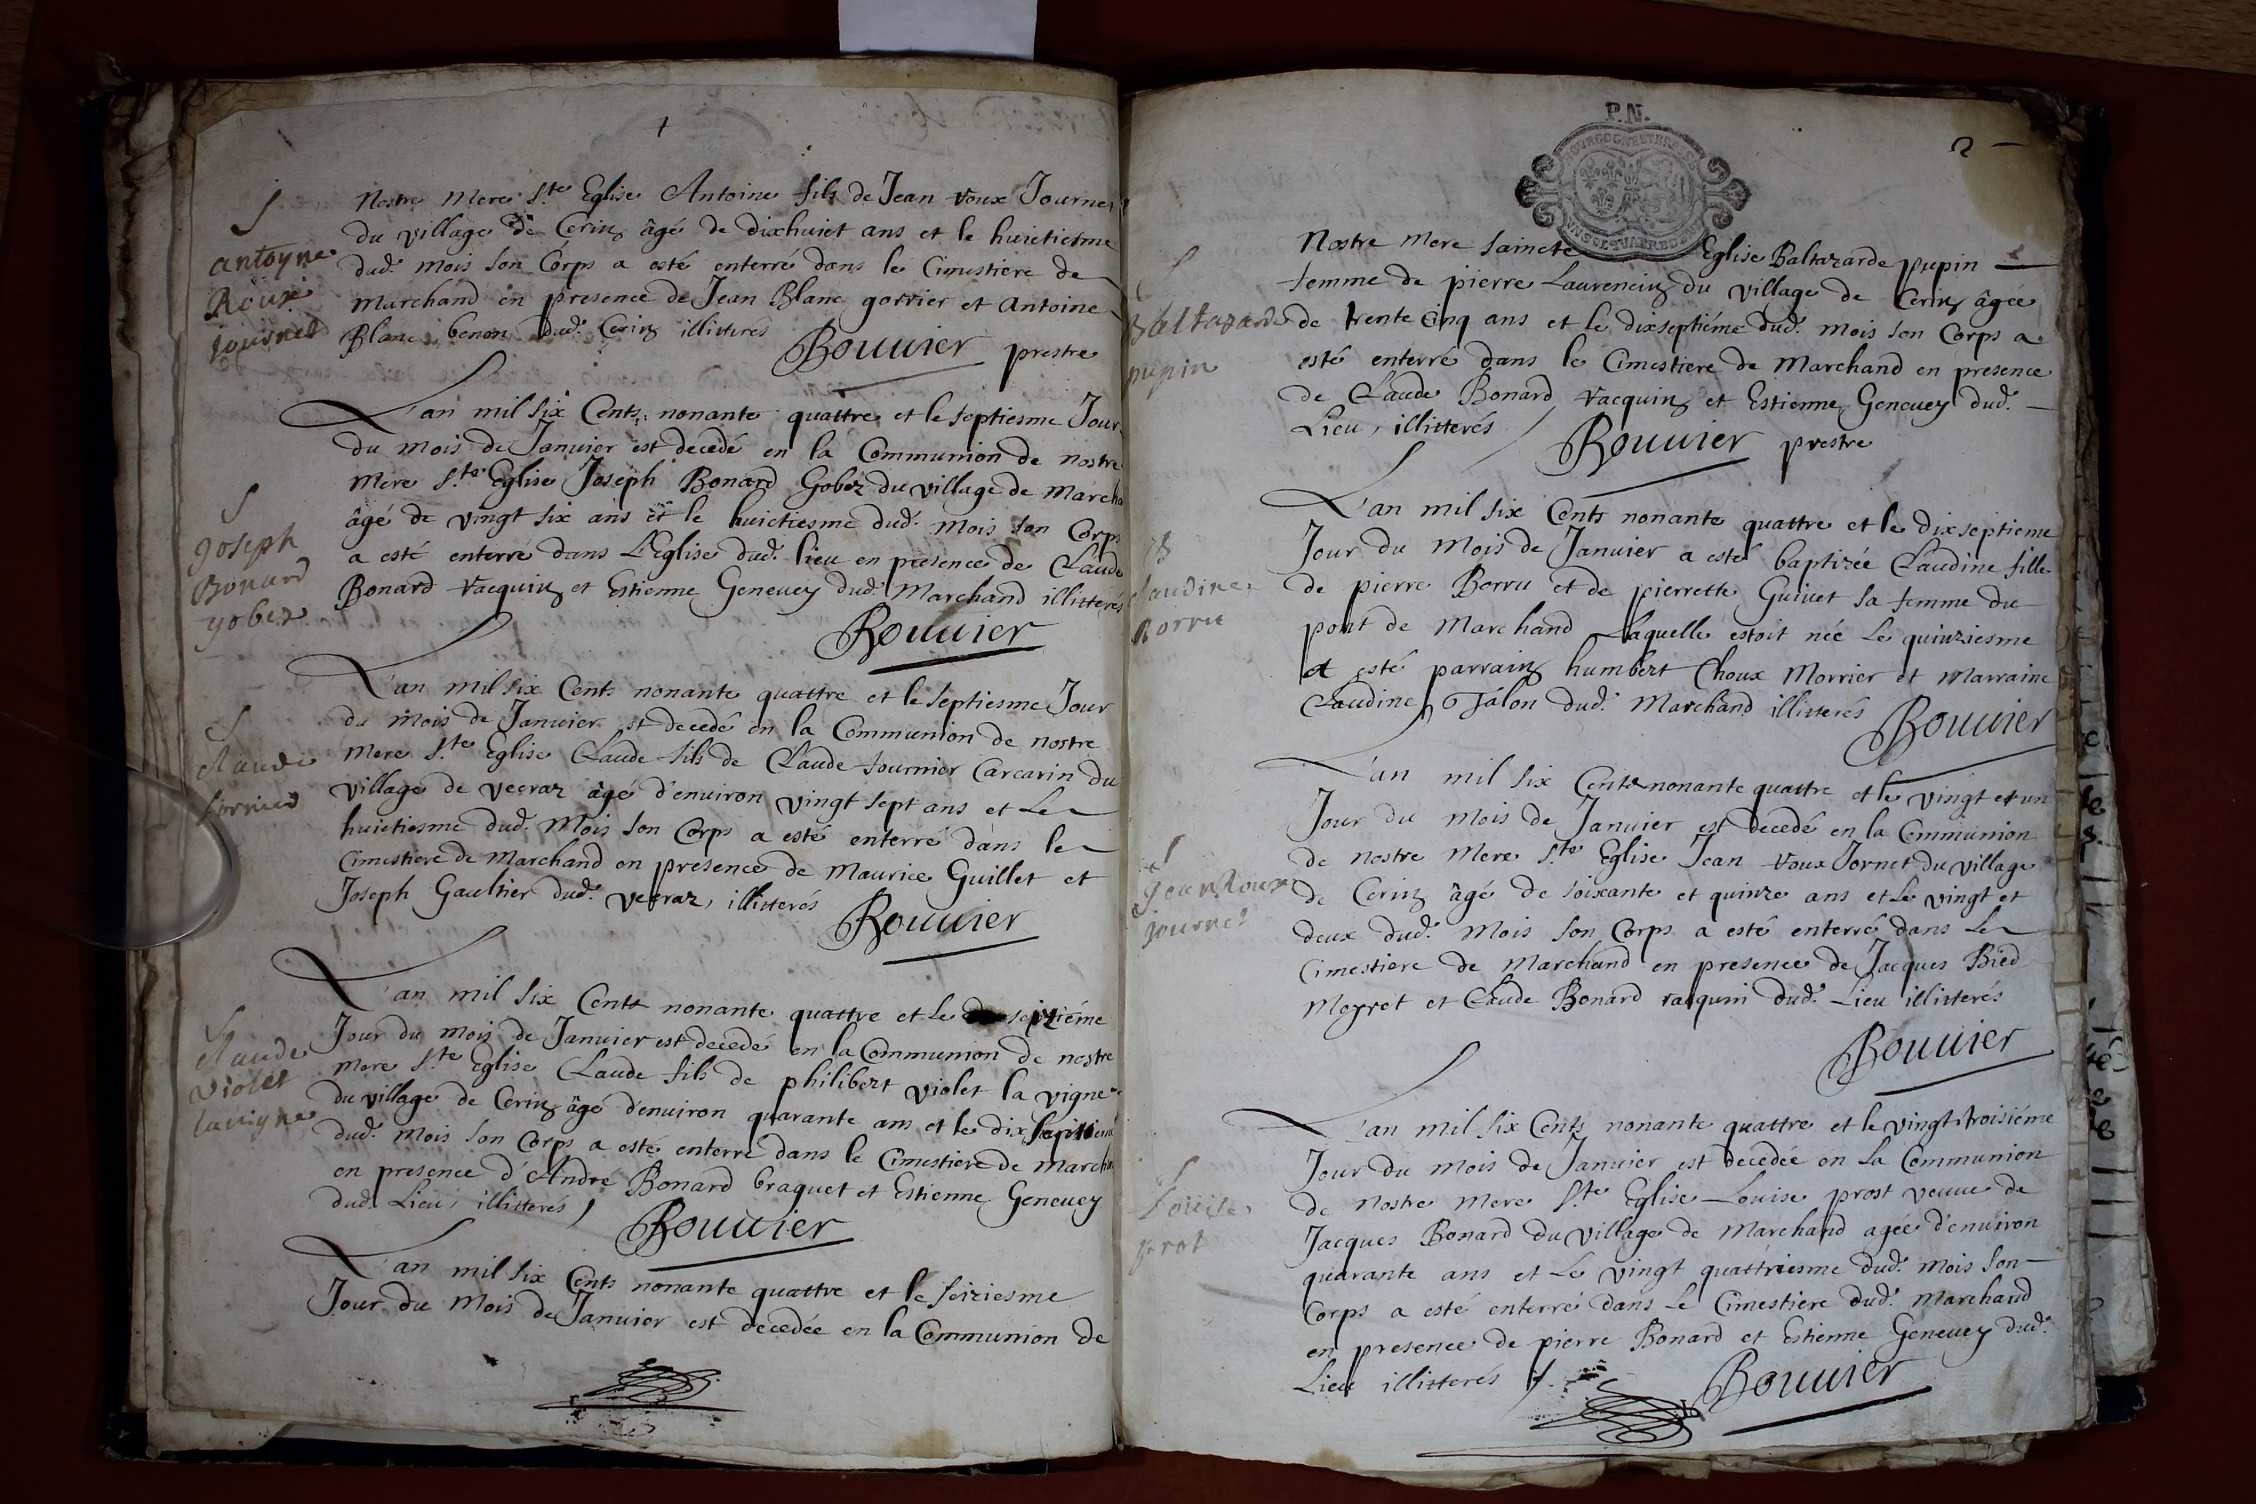 S
antoyne
Roux
journet
Nostre Mere Ste Eglise Antoine fils de Jean Roux Journet
du village de Cerin âgé de dixhuict ans et le huictiesme
dud. mois son Corps a esté enterré dans le Cimestiere de
Marchand en presence de Jean Blanc gorrier et Antoine
Blanc benon dud. Cerin illitterés
Bouuier prestre
S
Joseph
Bonard
gobez
L'an mil six Cents nonante quattre et le septiesme Jour
du mois de Januier est decedé en la Communion de nostre
Mere Ste Eglise Joseph Bonard Gobez du village de Marcha
âgé de vingt six ans et le huictiesme dud. mois son Corps
a esté enterré dans L'Eglise dud. lieu en presence de Claude
Bonard Vacquin et Estienne Geneuey dud. Marchand illitterés
Bouuier
S
claude
fornier
L'an mil six Cents nonante quattre et le septiesme Jour
du mois de Januier est decedé en la Communion de nostre
Mere Ste Eglise Claude fils de Claude fournier Carcarin du
village de vecraz âgé d'enuiron vingt sept ans et Le
huictiesme dud. Mois son Corps a esté enterré dans le
Cimestiere de Marchand en presence de Maurice Guillet et
Joseph Gaultier dud. vecraz, illitterés
Bouuier
S
claude
violet
lauigne
L'an mil six Cents nonante quattre et Le seiziéme
Jour du mois de Januier est decedé en la Communion de nostre
Mere Ste Eglise Claude fils de philibert violet la vigne
du village de Cerin âgé d'enuiron quarante ans et le dix septiém
dud. mois son Corps a esté enterré dans le Cimestiere de Marcha
en presence d'André Bonard braquet et Estienne Geneuey
dud. Lieu, illitterés
Bouuier
L'an mil six Cents nonante quattre et le seiziesme
Jour du Mois de Januier est decedée en la Communion de
P.N.
2
S
Baltazarde
pupin
Nostre Mere saincte Eglise Baltazarde pupin
femme de pierre Laurencin du village de Cerin âgée
de trente cinq ans et le dixseptiéme dud. mois son Corps a
esté enterré dans le Cimestiere de Marchand en presence
de Claude Bonard Vacquin et Estienne Geneuey dud.
Lieu, illitterés
Bouuier prestre
B
claudine
Borru
L'an mil six Cents nonante quattre et le dixseptieme
Jour du Mois de Januier a esté baptizée Claudine fille
de pierre Borru et de pierrette Guiuet sa femme du
pont de Marchand Laquelle estoit née Le quinziesme
a esté parrain humbert Choux Morrier et Marraine
Claudine Talon dud. Marchand illitterés
Bouuier
S
Jean Roux
journet
L'an mil six Cents nonante quattre et le vingt et un
Jour du Mois de Januier est decedé en la Communion
de nostre Mere Ste Eglise Jean Roux Jornet du village
de Cerin âgé de soixante et quinze ans et Le vingt et
deux dud. Mois son Corps a esté enterré dans Le
Cimestiere de Marchand en presence de Jacques Bied
Meyret et Claude Bonard vacquin dud. Lieu illitterés
Bouuier
S
Louise
prot
L'an mil six Cents nonante quattre et le vingt troisiéme
Jour du Mois de Januier est decedée en La Communion
de Nostre Mere Ste Eglise Louise prost veuue de
Jacques Bonard du village de Marchand agée d'enuiron
quarante ans et Le vingt quattriesme dud. mois son
Corps a esté enterré dans Le Cimestiere dud. Marchand
en presence de pierre Bonard et Estienne Geneuey dud.
Lieu illitterés
Bouuier